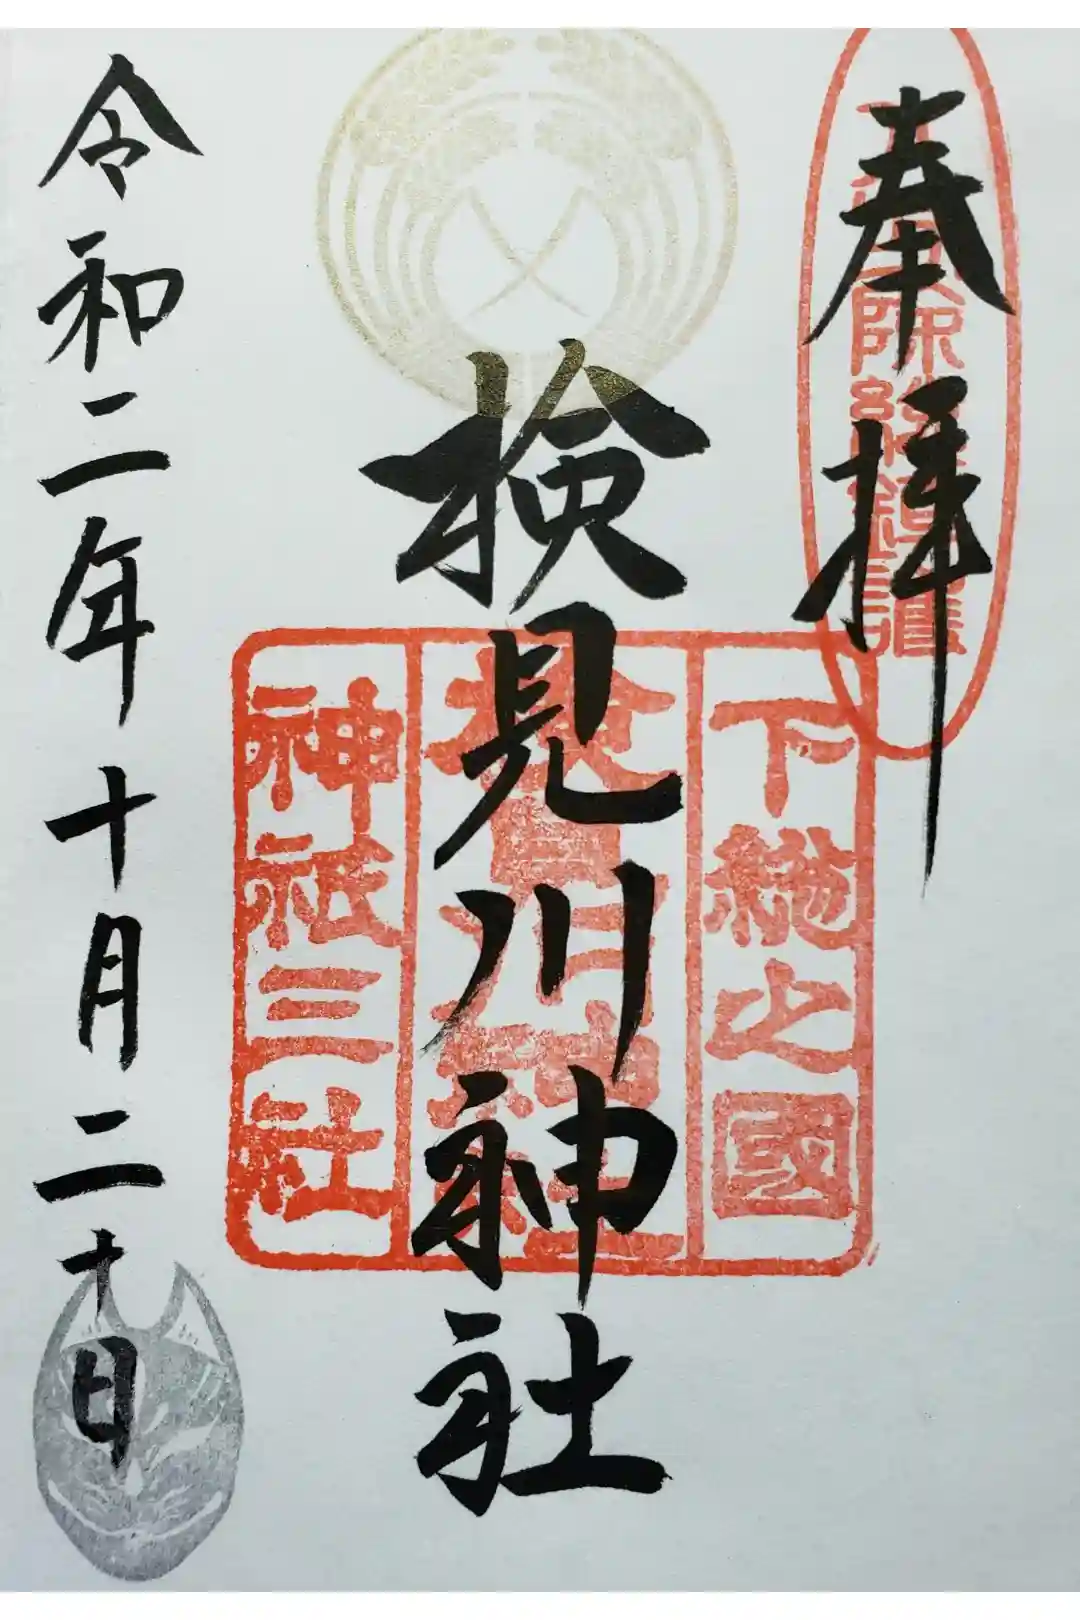 奉拝
下總之國
検見川神社
検見川神社
神祇三社
令和二年十月二十日